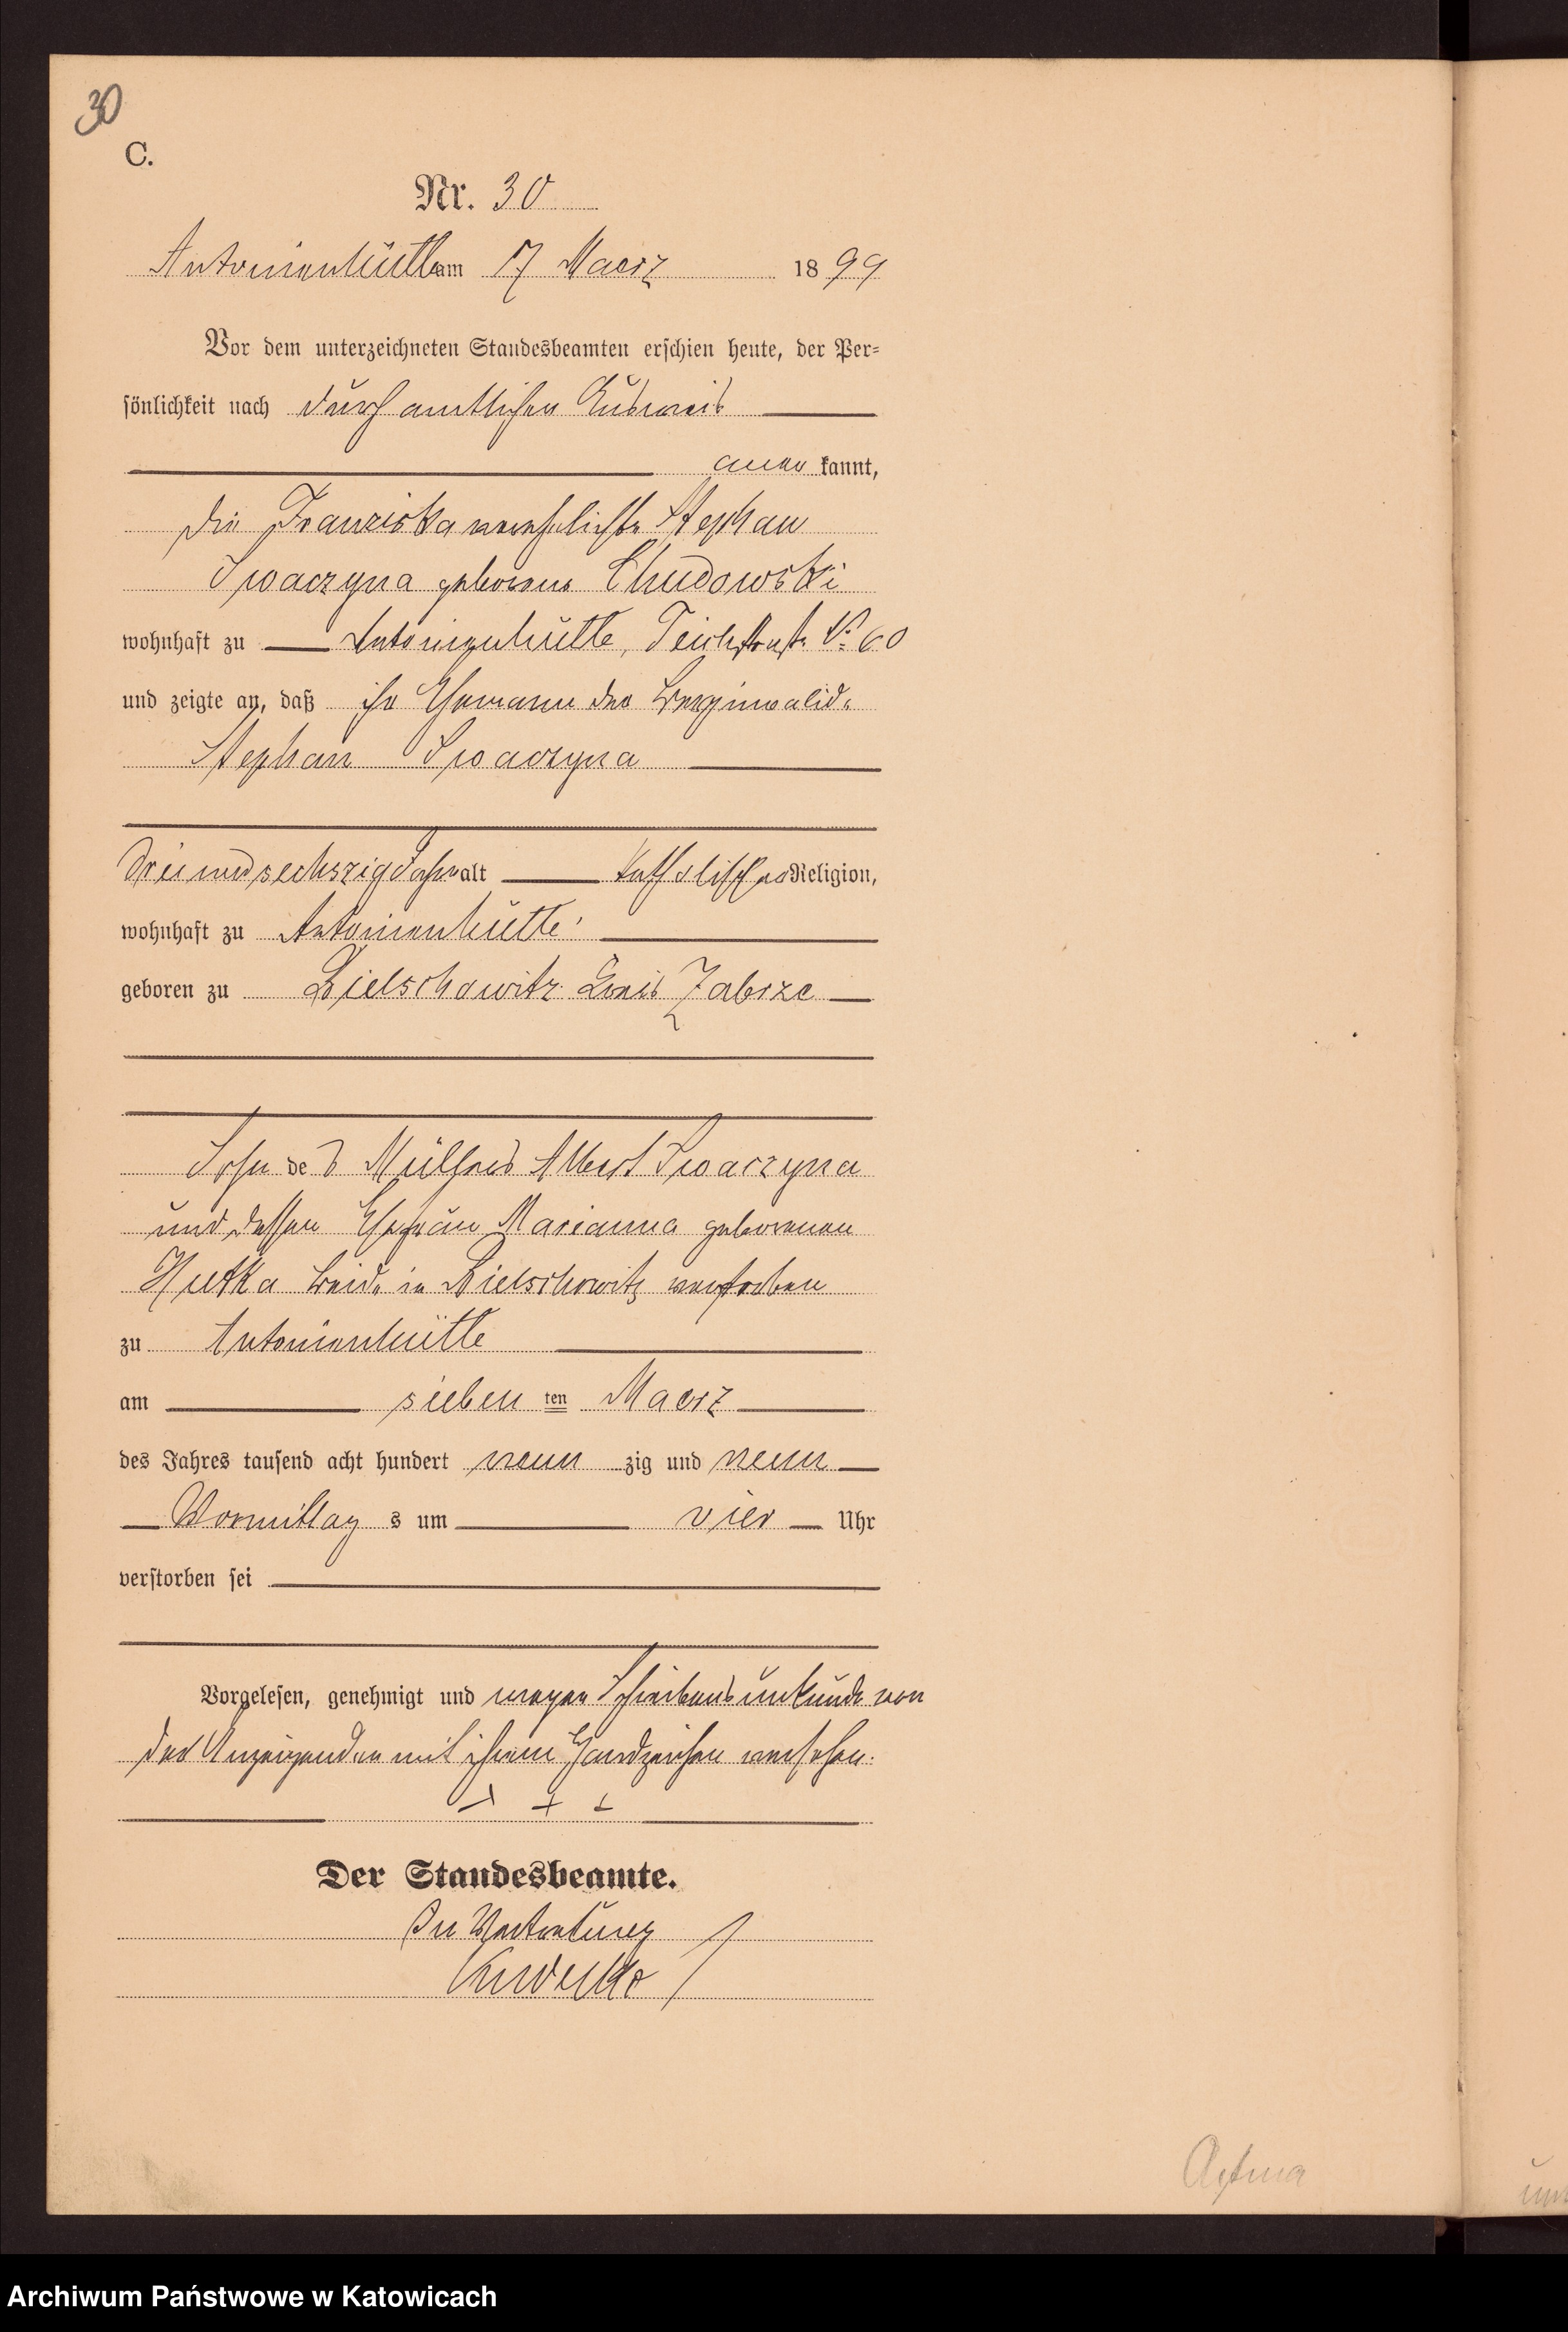 30
C.
Nr. 30
Antonienhütte am 17 Maerz 1899
Vor dem unterzeichneten Standesbeamten erschien heute, der Per-
sönlichkeit nach durch amtlichen Ausweis
aner kannt,
die Franziska verehelichte Stephan
Swaczyna geborene Chudowski
wohnhaft zu Antonienhütte, Teichstraße No 60
und zeigte an, daß ihr Ehemann der Berginvalide
Stephan Swaczyna
dreiundsechszig Jahre alt katholischer Religion,
wohnhaft zu Antonienhütte
geboren zu Bielschowitz Kreis Zabrze
Sohn des Müllers Albert Swaczyna
und dessen Ehefrau Marianna geborenen
Hutka beide in Bielschowitz verstorben
zu Antonienhütte
am sieben ten Maerz
des Jahres tausend acht hundert neun zig und neun
Vormittag s um vier Uhr
verstorben sei
Vorgelesen, genehmigt und wegen Schreibensunkunde von
der Anzeigenden mit ihrem Handzeichen versehen.
+ + +
Der Standesbeamte.
In Vertretung
Archiwum Państwowe w Katowicach